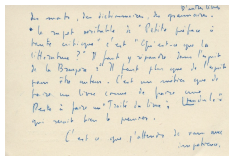 D'autres livres
des mots, des dictionnaires, des grammaires.
• le sujet véritable à "Petite préface à
toute critique" c'est "Qu'est-ce que la
littérature?" Il faut y répondre dans l'esprit
de la Bruyère : "Il faut plus que de l'esprit
pour être auteur. C'est un métier que de
faire un livre comme de faire une
Reste à faire un "Traité du livre à
qui aurait tout le
C'est ce que j'attends de vous avec
impatience.